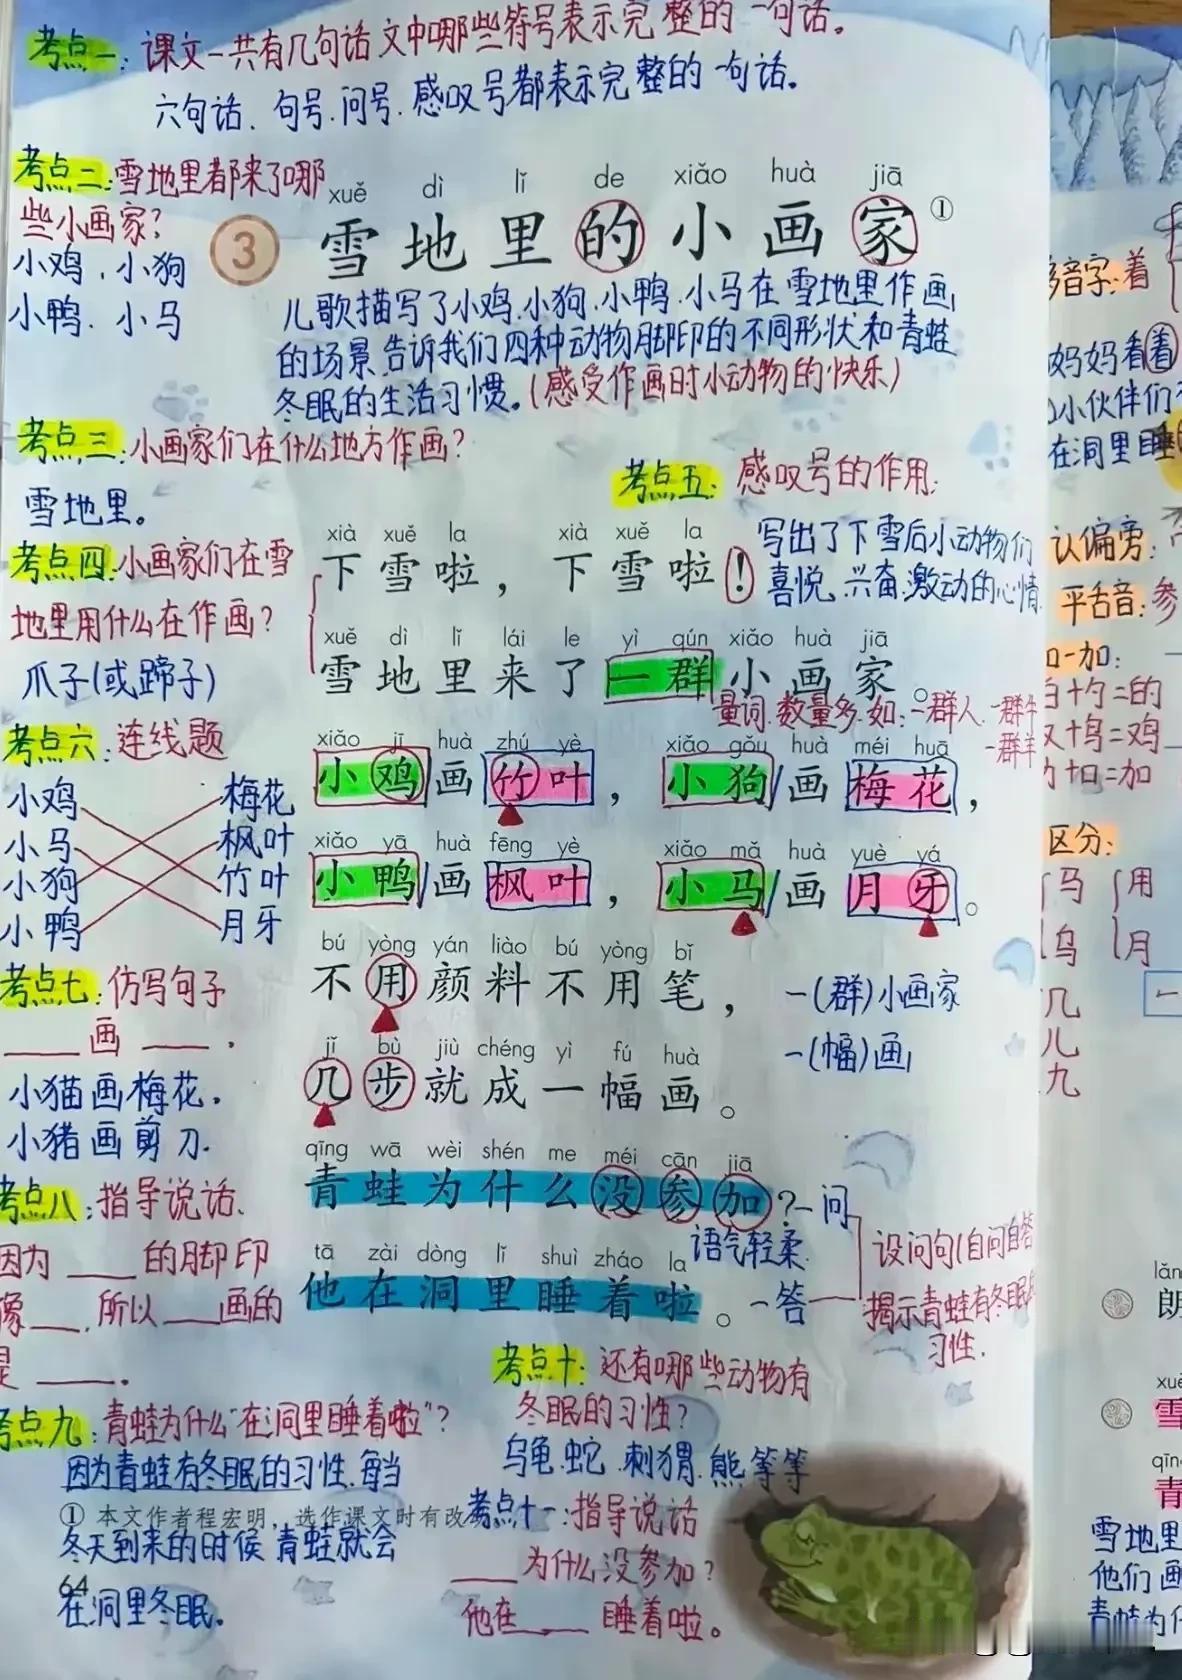 考点一:课文一共有几句话 文中哪些符号表示完整的一句话。
六句话、句号.问号.感叹号都表示完整的一句话。
考点二:雪地里都来了哪
些小画家?
小鸡、小狗
小鸭、小马
xuě dì lǐ de xiǎo huà jiā
3 雪地里的小画家①
儿歌描写了小鸡.小狗.小鸭.小马在雪地里作画
的场景 告诉我们四种动物脚印的不同形状和青蛙
冬眠的生活习惯。(感受作画时小动物的快乐)
考点三:小画家们在什么地方作画?
雪地里。
考点四:小画家们在雪
地里用什么在作画?
爪子(或蹄子)
考点五:感叹号的作用:
写出了下雪后小动物们
喜悦、兴奋.激动的心情
xià xuě la xià xuě la
下雪啦，下雪啦！
xuě dì lǐ lái le yì qún xiǎo huà jiā
雪地里来了一群小画家。
量词.数量多.如:一群人.一群牛
一群羊
考点六:连线题
小鸡 梅花
小马 枫叶
小狗 竹叶
小鸭 月牙
xiǎo jī huà zhú yè xiǎo gǒu huà méi huā
小鸡画竹叶，小狗/画梅花，
xiǎo yā huà fēng yè xiǎo mǎ huà yuè yá
小鸭/画枫叶，小马/画月牙。
考点七:仿写句子
____画____.
小猫画梅花.
小猪画剪刀.
bú yòng yán liào bú yòng bǐ
不用颜料不用笔，
一(群)小画家
一(幅)画
jǐ bù jiù chéng yì fú huà
几步就成一幅画。
考点八:指导说话.
因为____的脚印
像____,所以____画的
是____.
qīng wā wèi shén me méi cān jiā
青蛙为什么没参加？—问
语气轻柔
设问句(自问自答
揭示青蛙有冬眠的
习性.
tā zài dòng lǐ shuì zháo la
他在洞里睡着啦。—答
考点九:青蛙为什么"在洞里睡着啦"?
因为青蛙有冬眠的习性.每当
冬天到来的时候 青蛙就会
在洞里冬眠。
考点十:还有哪些动物有
冬眠的习性?
乌龟.蛇.刺猬.熊等等
① 本文作者程宏明，选作课文时有改
64
考点十一:指导说话
____为什么没参加?
他在____睡着啦。
多音字:着
妈妈看着
小伙伴们
在洞里睡
认偏旁:
平舌音:参
加一加:
白+勺=的
又+鸟=鸡
力+口=加
区分:
马 用
鸟 月
几
儿
九
lǎn
朗
xuě
雪
qīng
青
雪地里
他们画
青蛙为什